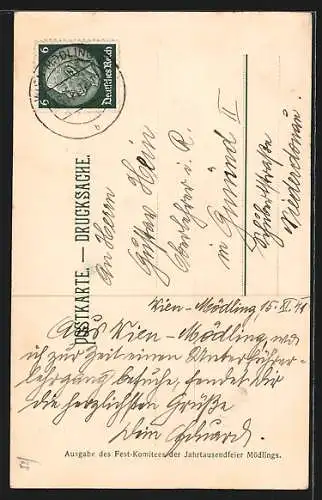 POSTKARTE. — DRUCKSACHE.
Deutsches Reich
6 6
An Herrn
Gustav Hein
Oberlehrer i. R.
in Gmünd II
Schubertstraße
Niederdonau.
Wien-Mödling 15. XI. 41
Aus Wien-Mödling, wo
ich zur Zeit einen Unterführer-
lehrgang besuche, sendet Dir
die herzlichsten Grüße
Dein Eduard.
Ausgabe des Fest-Komitees der Jahrtausendfeier Mödlings.